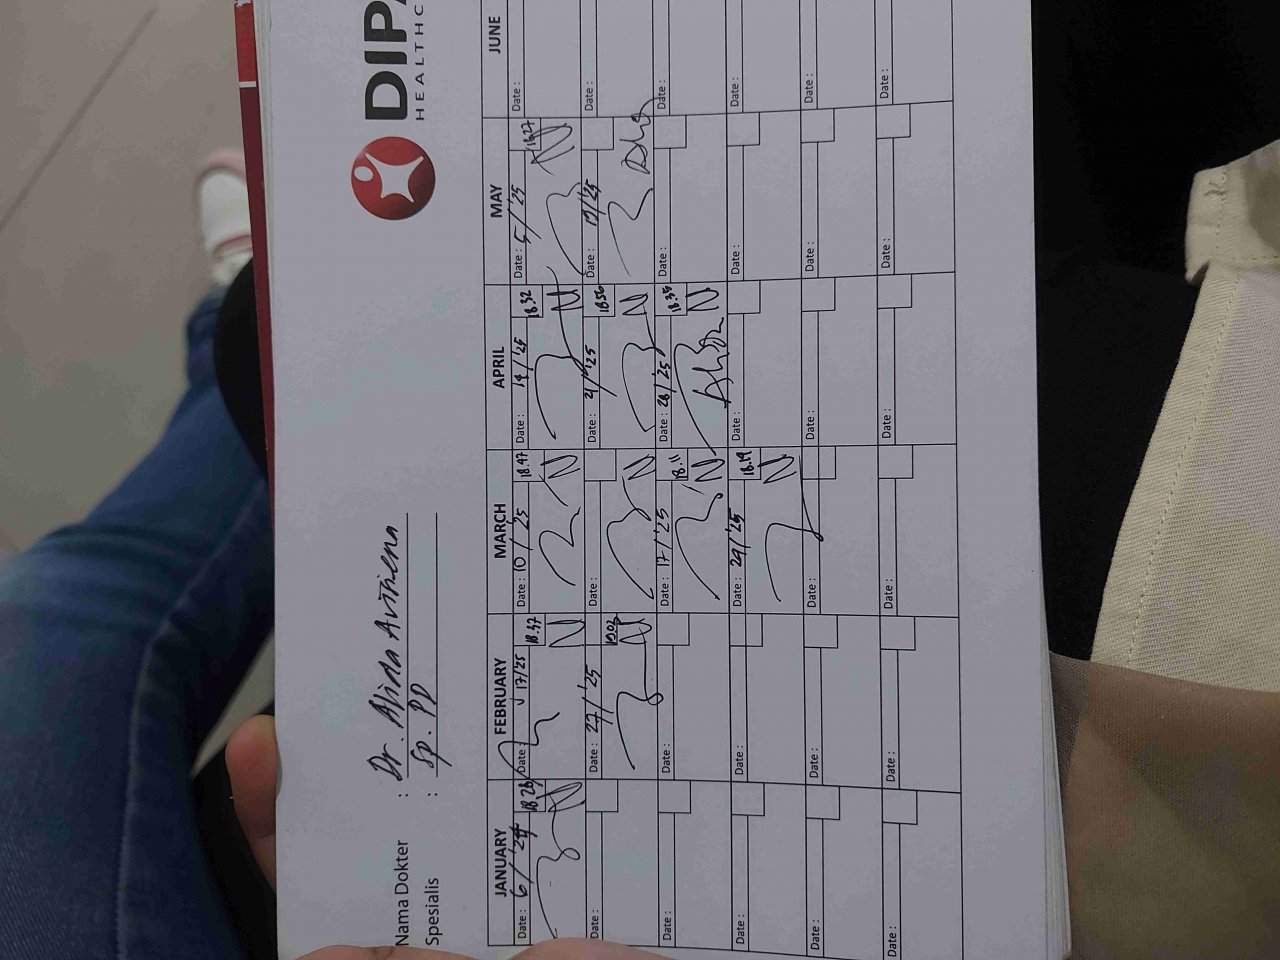 DIPA
HEALTHC
Nama Dokter : Dr. Alida Avthena
Spesialis : Sp. PD
JANUARY FEBRUARY MARCH APRIL MAY JUNE
Date : 6/ '24 18.26 Date : 17/25 18.37 Date : 10/ '25 18.47 Date : 14/ '25 18.32 Date : 5/ '25 18.27 Date :
Date : Date : 27/ '25 19.02 Date : Date : 21/ '25 18.56 Date : 19/ '25 Date :
Date : Date : Date : 17/ '25 18.11 Date : 28/ '25 18.35 Date : Date :
Date : Date : Date : 29/ '25 18.19 Date : Date : Date :
Date : Date : Date : Date : Date : Date :
Date : Date : Date : Date : Date : Date :